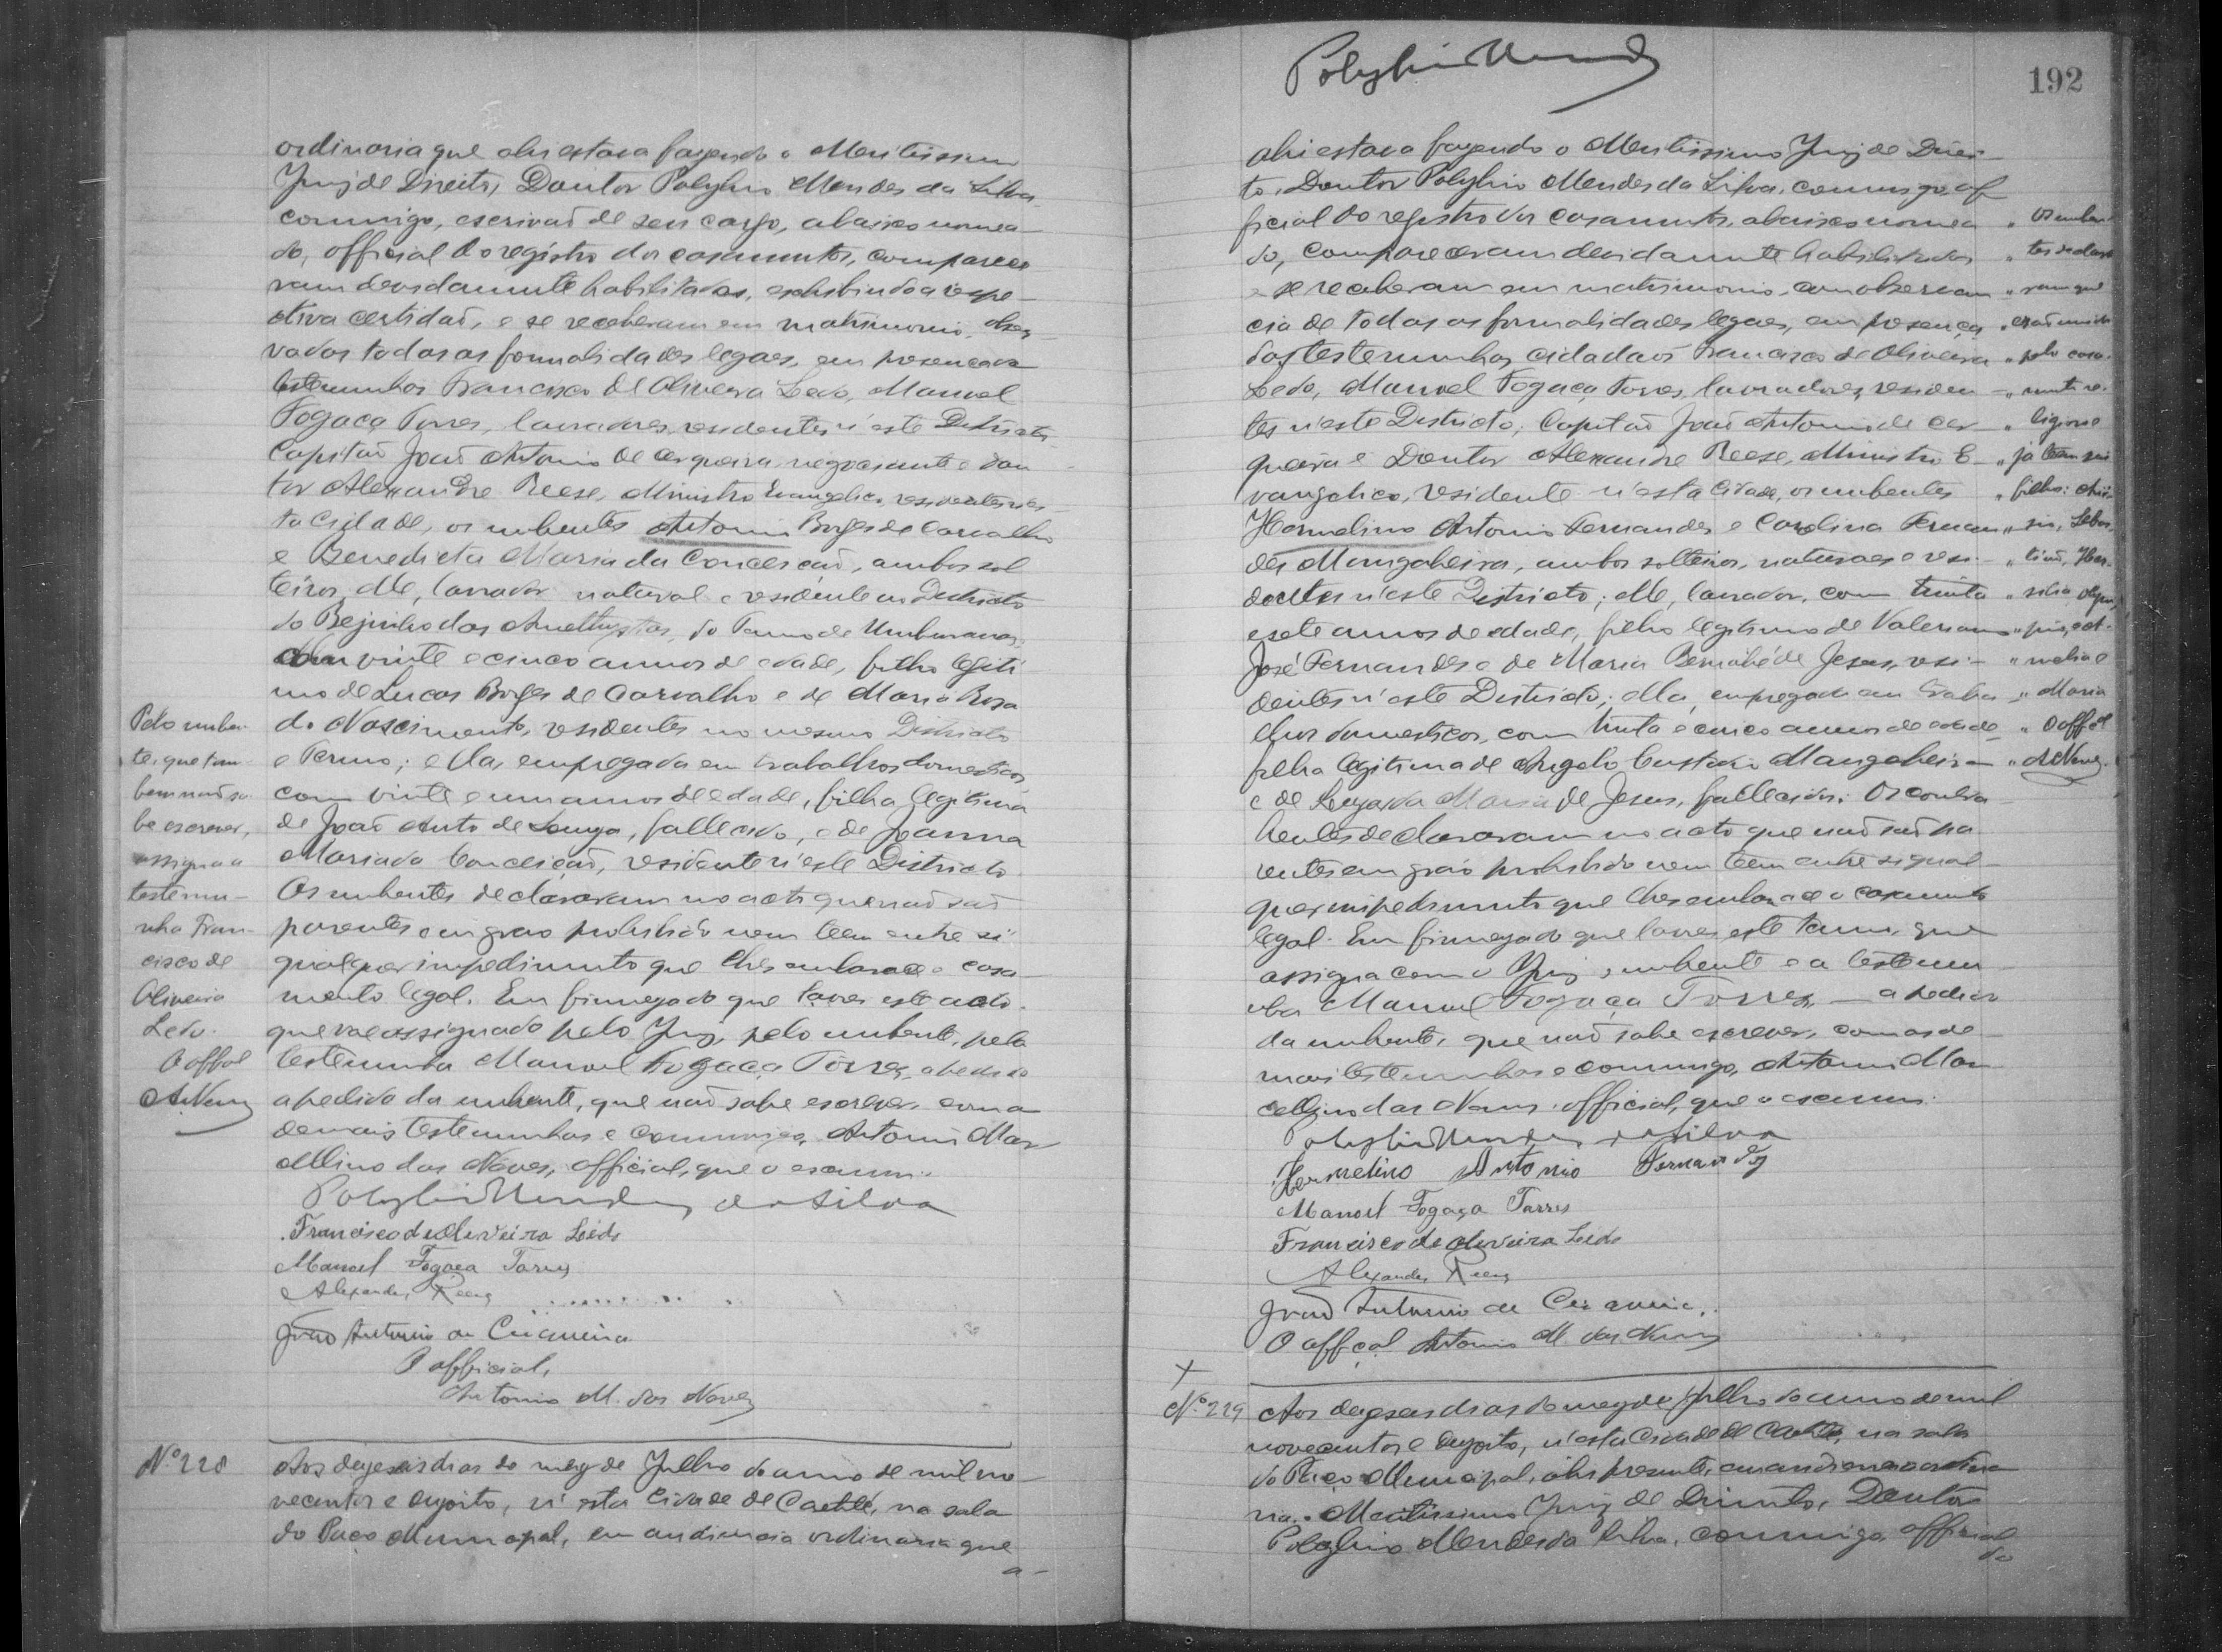 ordinaria que ahi estava fazendo o Meritissimo
Juiz de Direito, Doutor Polybio Mendes da Silva,
commigo, escrivaõ de seu cargo, abaixo nomea-
do, official do registro dos casamentos, comparece
ram devidamente habilitados, exhibindo a respe-
ctiva certidaõ, e se receberam em matrimonio, obser
vadas todas as formalidades legaes, em presença das
testemunhas Francisco de Oliveira Ledo, Manoel
Fogaça Torres, lavradores, residentes n'este Districto,
Capitaõ Joaõ Antonio de Cerqueira, negociante e Dou-
tor Alexandre Reese, Ministro Evangelico, residentes nes-
ta Cidade, os nubentes Antonio Borges de Carvalho
e Benedicta Maria da Conceiçaõ, ambos sol
teiros, elle, lavrador natural e residente no Districto
do Bejinho das Amethystas, do Termo de Umburanas,
com vinte e cinco annos de edade, filho legiti
mo de Lucas Borges de Carvalho e de Maria Rosa
do Nascimento, residentes no mesmo Districto
e Termo; ella, empregada em trabalhos domesticos
com vinte e um annos de edade, filha legitima
de Joaõ Anto de Souza, fallecido, e de Joanna
Maria da Conceiçaõ, residente n'este Districto
Os nubentes declararam no acto que naõ saõ
parentes em grao prohibido nem teem entre si
qualquer impedimento que lhes embarace o casa-
mento legal. Em firmeza do que lavrei este acto
que vae assignado pelo Juiz, pelo nubente, pela
testemunha Manoel Fogaça Torres, a pedido
a pedido da nubente, que naõ sabe escrever, com as
demais testemunhas e commigo, Antonio Mar
cellino das Neves, official, que o escrevi.
Polybio Mendes da Silva
Francisco de Oliveira Lêdo
Manoel Fogaça Torres
Alexander Reese
Joaõ Antonio de Cerqueira
O official,
Antonio M. das Neves
Pelo nuben
te, que tam-
bem naõ sa
be escrever,
assigna a
testemu-
nha Fran-
cisco de
Oliveira
Ledo.
O offal
A Neves
Nº 228
Aos dezeseis dias do mez de Julho do anno de mil no-
vecentos e dezoito, n'esta Cidade de Caetité, na sala
do Paço Municipal, em audiencia ordinaria que
a-
Polybio Mendes
192
ahi estava fazendo o Meritissimo Juiz de Direi-
to, Doutor Polybio Mendes da Silva, commigo, of
ficial do registro dos casamentos, abaixo nomea
do, compareceram devidamente habilitados
e se receberam em matrimonio, com observan
cia de todas as formalidades legaes, em presença
das testemunhas, cidadaõs Francisco de Oliveira
Ledo, Manoel Fogaça Torres, lavradores, residen-
tes n'este Districto, Capitaõ Joaõ Antonio de Cer
queira e Doutor Alexandre Reese, Ministro E-
vangelico, residente n'esta Cidade, os nubentes
Hermelino Antonio Fernandes e Carolina Fernan
des Mangabeira, ambos solteiros, naturaes e resi-
dentes n'este Districto; elle, lavrador, com trinta
e sete annos de edade, filho legitimo de Valeriano
José Fernandes e de Maria Bernabé de Jesus, resi-
dentes n'este Districto; ella, empregada em traba
lhos domesticos, com trinta e cinco annos de edade
filha legitima de Angelo Custodio Mangabeira
e de Maria de Jesus, fallecidos. Os contra
hentes declararam no acto que naõ saõ pa
rentes em grao prohibido nem teem entre si qual
quer impedimento que lhes embarace o casamento
legal. Em firmeza do que lavrei este termo que
assigna com o Juiz o nubente e a testemu
nha Manoel Fogaça Torres, a pedido
da nubente, que naõ sabe escrever, com as de
mais testemunhas e commigo, Antonio Mar
cellino das Neves, official, que o escrevi.
Polybio Mendes da Silva
Hermelino Antonio Fernandes
Manoel Fogaça Torres
Francisco de Oliveira Lêdo
Alexander Reese
Joaõ Antonio de Cerqueira
O offical Antonio M. das Neves
" Os nuben
" tes declara
" ram que
" eraõ unidos
" pelo casa-
" mento re-
" ligioso
" já teem seis
" filhos:
" tiaõ, Her-
" silia,
" Maria
" O offal
" A Neves
X
Nº 229
Aos dezeseis dias do mez de Julho do anno de mil
novecentos e dezoito, n'esta Cidade de Caetité, na sala
do Paço Municipal, ahi presente, em audiencia ordina
ria o Meritissimo Juiz de Direito, Doutor
Polybio Mendes da Silva, commigo, official
do